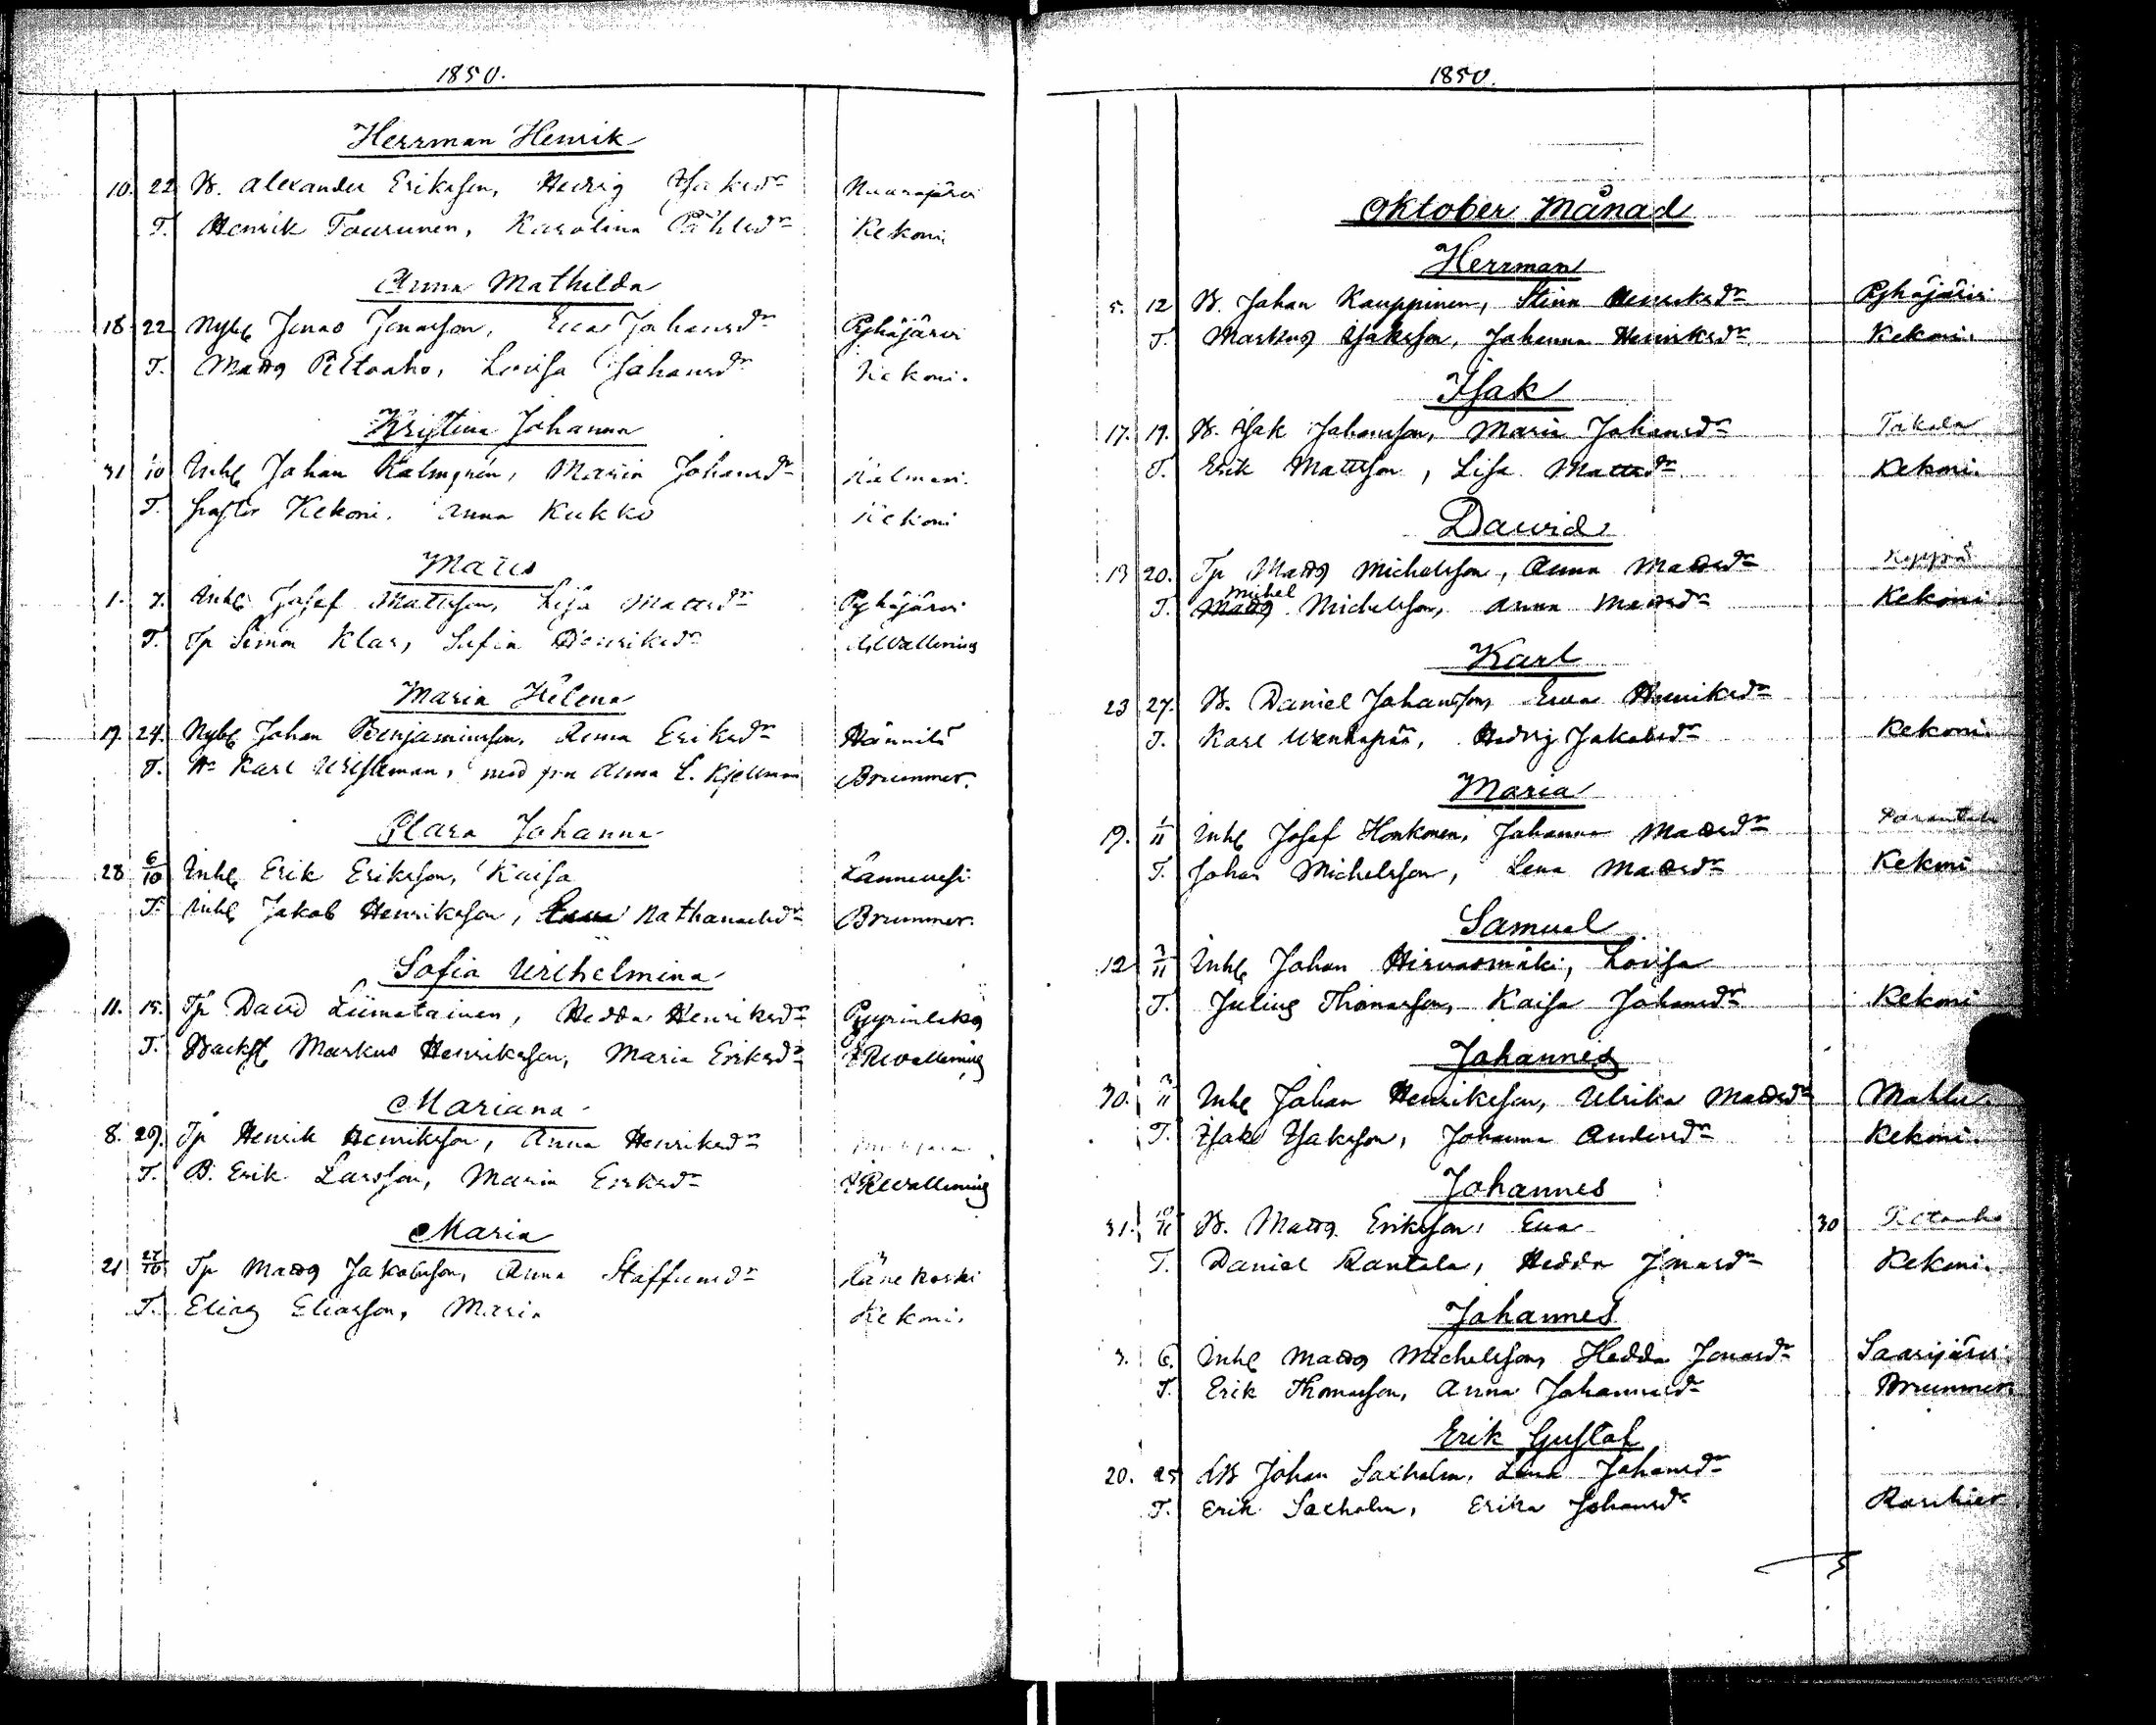 1850.
Herrman Henrik
10. 22 B. Alexander Eriksson, Hedvig Isaksdr Nuarajärvi
T. Henrik Tourunen, Karolina Påhlsdr Kekoni
Anna Mathilda
18 22 Nybg Jonas Jonasson, Eva Johansdr Pyhäjärvi
T. Matts Piltoaho, Lovisa Johansdr Kekoni.
Kristina Johanna
31 1/10 Inhg Johan Kalmgren, Maria Johansdr Kalmari.
T. Kekoni. Anna Kukko Kekoni
Matts
1. 7. Inhg Josef Mattsson, Lisa Mattsdr Pyhäjärvi
T. Tp Simon Klar, Sofia Henriksdr Wallenius
Maria Helena
19. 24. Nybg Johan Benjaminsson, Anna Eriksdr Hännilä
T. Hr Karl Wesleman, med fru Anna L. Kjellman Brummer.
Clara Johanna
28 6/10 Inhg Erik Eriksson, Kaisa Lannevesi
T. Inhg Jakob Henriksson, Nathanaelsdr Brummer.
Sofia Wilhelmina
11. 15. Tp David Liimatainen, Hedda Henriksdr Pyyrinlaks
T. Backst Markus Henriksson, Maria Eriksdr Wallenius
Mariana
8. 29. Tp Henrik Henriksson, Anna Henriksdr
T. B. Erik Larsson, Maria Eriksdr Wallenius
Maria
21 27/10 Tp Matts Jakobsson, Anna Staffansdr Äänekoski
T. Elias Eliasson, Maria Kekoni.
1850.
Oktober Månad
Herrman
5. 12 B. Johan Kauppinen, Stina Henriksdr Pyhäjärvi
T. Markus Isaksson, Johanna Henriksdr Kekoni.
Isak
17. 19. B. Isak Johansson, Maria Johansdr Takala
T. Erik Mattsson, Lisa Mattsdr Kekoni.
David
13 20. Tp Matts Michelsson, Anna Mattsdr
Michel
T. Matts Michelsson, Anna Mattsdr Kekoni
Karl
23 27. B. Daniel Johansson, Eva Henriksdr
T. Karl Wenkapää, Hedvig Jakobsdr Kekoni.
Maria
19. 1/11 Inhg Josef Honkonen, Johanna Mattsdr Parantala
T. Johan Michelsson, Lena Mattsdr Kekoni
Samuel
12 3/11 Inhg Johan Hirvasmäki, Lovisa
T. Julius Thomasson, Kaisa Johansdr Kekoni
Johannes
30. 3/11 Inhg Johan Henriksson, Ulrika Mattsdr Mahlu.
T. Isak Isaksson, Johanna Andersdr Kekoni.
Johannes
31. 10/11 B. Matts Eriksson, Eva 30 Piltoaho
T. Daniel Rantala, Hedda Jonasdr Kekoni.
Johannes
3. 6. Inhg Matts Michelsson, Hedda Jonasdr Saarijärvi.
T. Erik Thomasson, Anna Johannesdr Brummer.
Erik Gustaf
20. 25 LB Johan Saxholm, Lena Johansdr
T. Erik Saxholm, Erika Johansdr